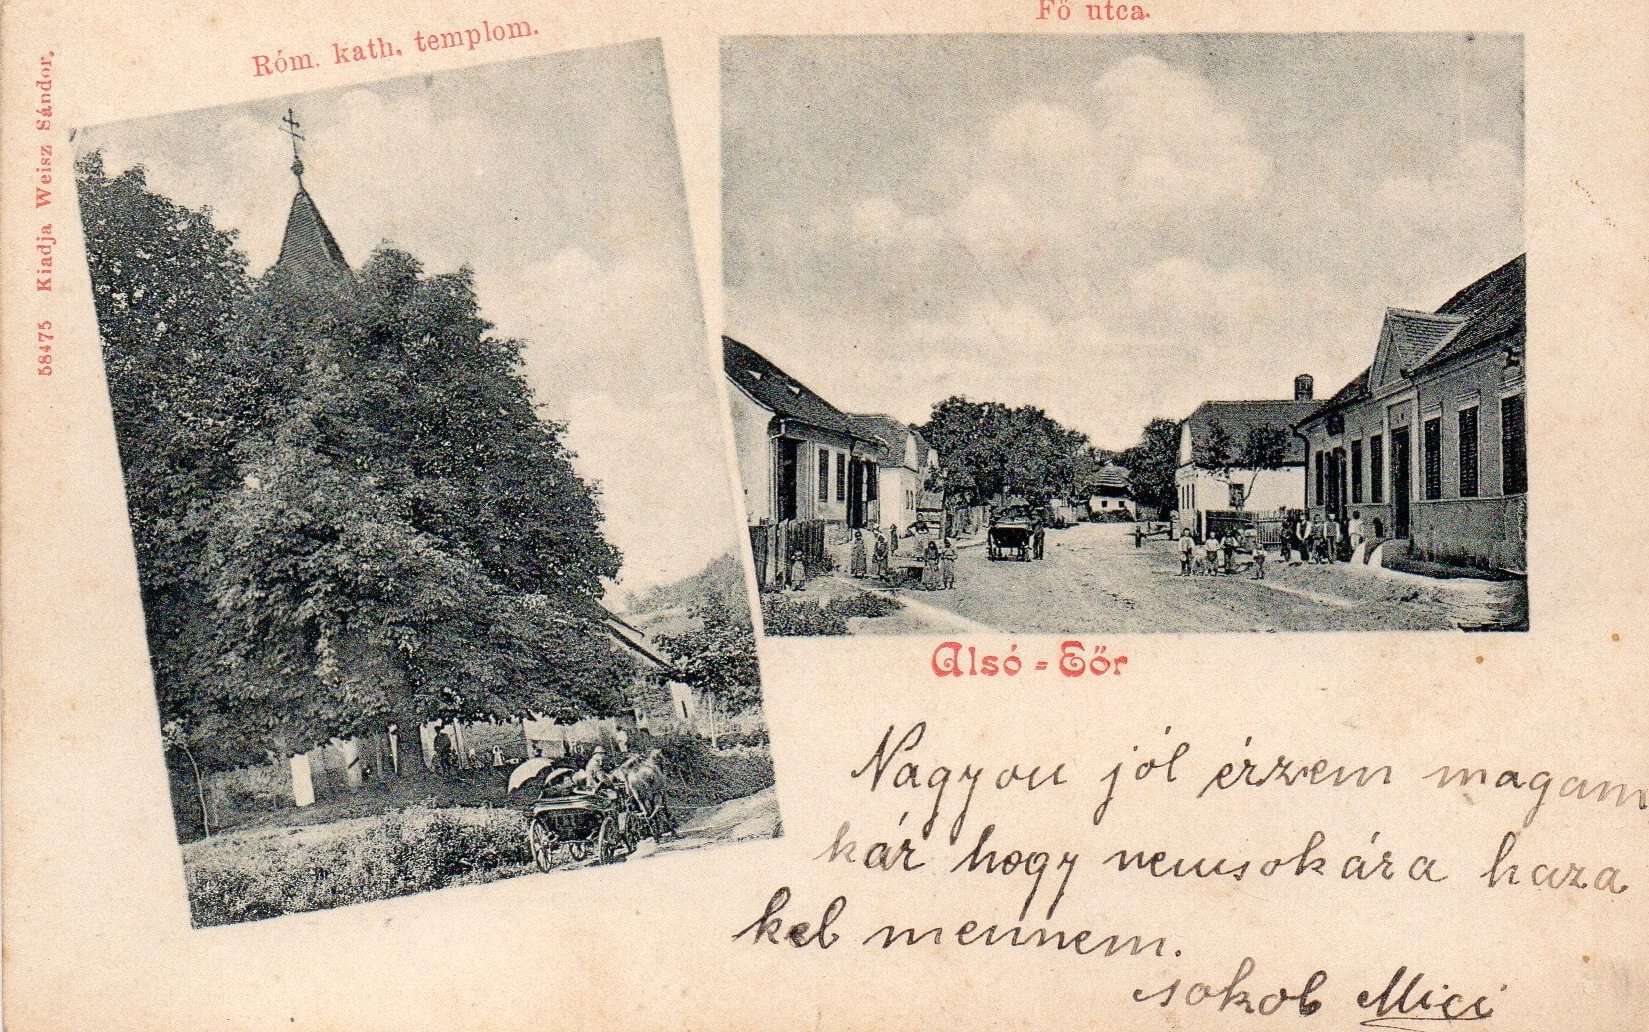 Róm. kath. templom.
Fő utca.
58475 Kiadja Weisz Sándor.
Alsó-Eőr
Nagyon jól érzem magam
kár hogy nemsokára haza
kel mennem.
sokob Mici